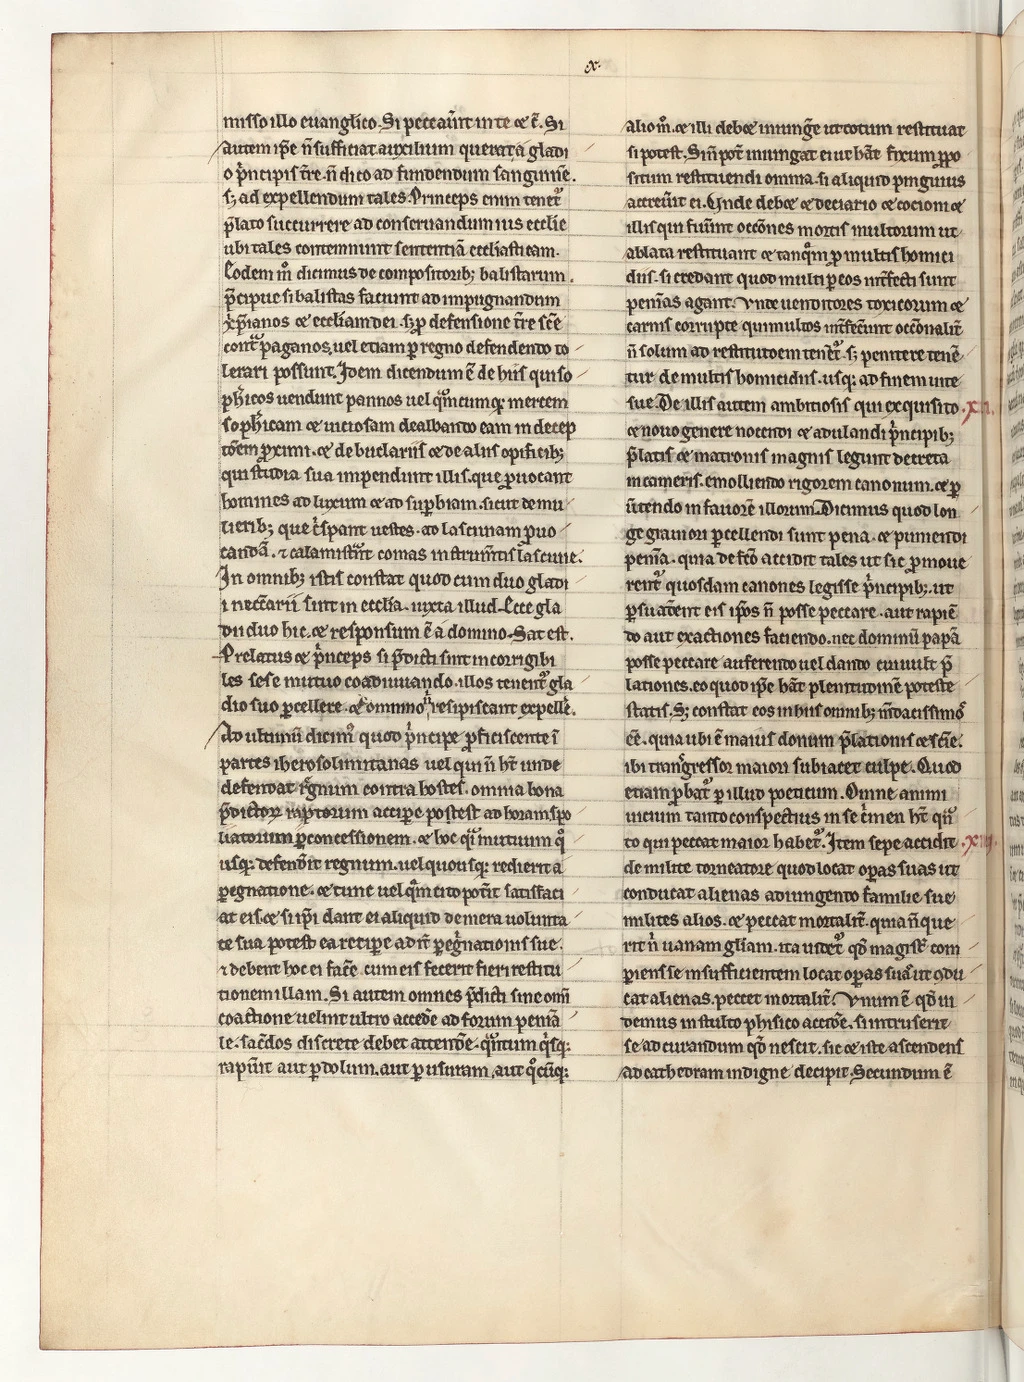 x.
misso illo euanglico. Si peccaũit in te ⁊ c̃. Si
autem ip̃e ñ sufficiat auxilium querat a gladi
o p̃ncipis t̃re. ñ dico ad fundendum sanguinẽ.
s; ad expellendum tales. Princeps enim tenet᷑
p̃lato succurrere ad conseruandum ius ecclie
ubi tales contemnunt sententiã ecclasticam.
Eodem m̊ dicimus de compositorib; balistarum.
p̃cipue si balistas faciunt ad impugnandum
xp̃ianos ⁊ eccliam dei. s; ꝓ defensione t̃re sc̃e
cont̃ paganos uel etiam ꝓ regno defendendo to
lerari possunt. Idem dicendum ẽ de hiis qui so
phicos uendunt pannos uel q̃mcumq; mercem
sophicam ⁊ uiciosam dealbando eam in decep
tõem ꝓximi. ⁊ de buclariis ⁊ de aliis opificib;
qui studia sua impendunt illis. que ꝓuocant
homines ad luxum ⁊ ad suꝑbiam. sicut de mu
lierib; que c̃spant uestes. ad lasciuiam ꝓuo
candã. ⁊ calamist̃nt comas instrum̃tis lasciuie.
In omnib; istis constat quod cum duo gladi
i necc̃arii sunt in ecclia. iuxta illud. Ecce gla
dii duo hic. ⁊ responsum ẽ a domino. Sat est.
Prelatus ⁊ p̃nceps si p̃dicti sint incorrigibi
les sese mutuo coadiuuando. illos tenent᷑ gla
dio suo ꝑcellere. ⁊ omnino resipiscant expellẽ.
Ad ultimũ dicim᷒ quod p̃ncipe ꝓficiscente ĩ
partes iherosolimitanas uel qui ñ ht̃ unde
defendat r̃gnum contra hostes. omnia bona
p̃dictoꝝ raptorum accipe postest ad horam spo
liatorum ꝑ concessionem. ⁊ hoc q̃i mutuum q̊
usq; defend̃it regnum. uel quousq; redierit a
ꝑegnatione. ⁊ tunc uel q̃m cito pot̃it satisfaci
at eis. ⁊ si ip̃i dant ei aliquid de mera uolunta
te sua potest ea recipe ad it̃ peg̃nationis sue.
⁊ debent hoc ei fac̃e. cum eis fecerit fieri restitu
tionem illam. Si autem omnes p̃dicti sine om̃i
coactione uelint ultro acced̃e ad forum penitã
le. sac̃dos discrete debet attend̃e. q̃ntum q̃sq;
rapũit aut ꝑ dolum. aut ꝑ usuram. aut q̊cũq;
alio m̊. ⁊ illi debet iniung̃e ut totum restituat
si potest. Si ñ pot̃ iniungat ei ut hãt fixum ꝓpo
situm restituendi omnia. si aliquid pinguius
accreũit ei. Unde debet ⁊ deciario ⁊ cocioni ⁊
illis qui fũint occõnes mortis multorum ut
ablata restituant ⁊ tanq̃m ꝓ multis homici
diis. si credant quod multi ꝑ eos int̃fecti sunt
penitiãs agant. Unde uenditores toxicorum ⁊
carnis corrupte qui multos int̃fec̃unt occõnalit̃
ñ solum ad restitutõem tenent᷑. s; penitere tenẽ
tur de multis homicidiis. usq; ad finem uite
sue. De illis autem ambitiosis qui exquisito
⁊ nouo genere nocendi ⁊ adulandi p̃ncipib;
p̃latis ⁊ matronis magnis legunt decreta
in cameris. emolliendo rigorem canonum. ⁊ ꝑ
ũtendo in fauorẽ illorum. Dicimus quod lon
ge grauiori ꝑcellendi sunt pena. ⁊ puniendi
penitiã. quia de fc̃o accidit tales ut sic ꝓmoue
rent᷑ quosdam canones legisse p̃ncipib;. ut
ꝑsuad̃ent eis ip̃os ñ posse peccare. aut rapiẽ
do aut exactiones faciendo. nec dominũ papã
posse peccare auferendo uel dando cui uult p̃
lationes. eo quod ip̃e hãt plenitudinẽ poteste
statis. S; constat eos in hiis omnib; m̃dacissimos
ẽẽ. quia ubi ẽ maius donum p̃lationis ⁊ sc̃ie.
ibi transgressor maiori subiacet culpe. Quod
etiam ꝓbat᷑ ꝑ illud poeticum. Omne animi
uicium tanto conspectius in se c̃men ht̃ q̃n
to qui peccat maior habet᷑. Item sepe accidit .xiii.
de milite torneatore quod locat oꝑas suas ut
conducat alienas adiungendo familie sue
milites alios. ⁊ peccat mortalit̃. quia ñ que
rit ñ uanam gl̃iam. ita uidet᷑ qd̃ magist̃ com
piens se insufficientem locat oꝑas suas ut ↄdu
cat alienas. peccet mortalit̃. Unum ẽ qd̃ ui
demus in stulto phisico accid̃e. si intruserit
se ad curandum qd̃ nescit. sic ⁊ iste ascendens
ad cathedram indigne decipit. Secundum ẽ